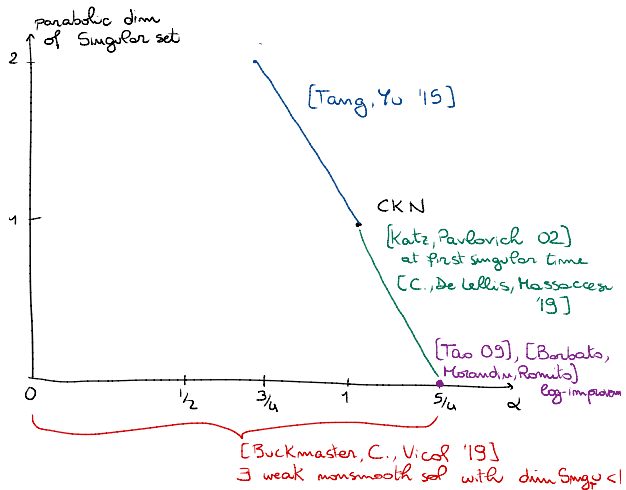 parabolic dim
of Singular set
2
[Tang, Yu '15]
CKN
1
[Katz, Pavlovich 02]
at first singular time
[C., De Lellis, Massaccesi
'19]
[Tao 09], [Barbato,
Morandin, Romito]
log-improvem
0
1/2
3/4
1
5/4
α
[Buckmaster, C., Vicol '19]
∃ weak nonsmooth sol with dim Sing <1